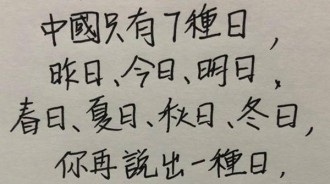 中國只有7種日，
昨日、今日、明日、
春日、夏日、秋日、冬日，
你再說出一種日．